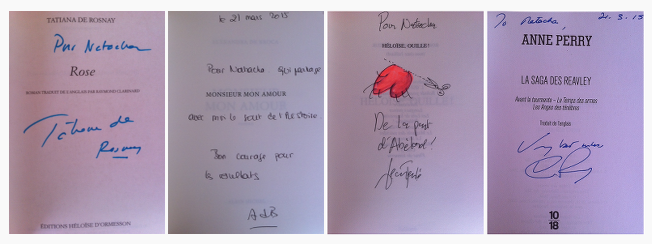 TATIANA DE ROSNAY
Pour Natacha
Rose
ROMAN TRADUIT DE L'ANGLAIS PAR RAYMOND CLARINARD
Tatiana de
Rosnay
ÉDITIONS HÉLOÏSE D'ORMESSON
le 21 mars 2015
Pour Natacha qui partage
MONSIEUR MON AMOUR
avec moi le goût de l'histoire
Bon courage pour
les résultats
AdB
Pour Natacha
HÉLOÏSE, OUILLE!
De la part
d'Abélard!
Jean Teulé
To Natacha, 21.3.15
ANNE PERRY
LA SAGA DES REAVLEY
Avant la tourmente - Le Temps des armes
Les Anges des ténèbres
Traduit de l'anglais
Very best wishes
10
18